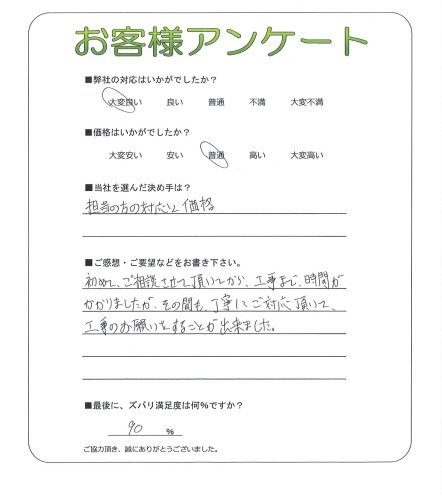 お客様アンケート
■弊社の対応はいかがでしたか?
大変良い 良い 普通 不満 大変不満
■価格はいかがでしたか?
大変安い 安い 普通 高い 大変高い
■当社を選んだ決め手は?
担当の方の対応と価格
■ご感想・ご要望などをお書き下さい。
初めて、ご相談させて頂いてから、工事まで、時間が
かかりましたが、その間も、丁寧にご対応頂いて、
工事のお願いをすることが出来ました。
■最後に、ズバリ満足度は何%ですか?
90 %
ご協力頂き、誠にありがとうございました。